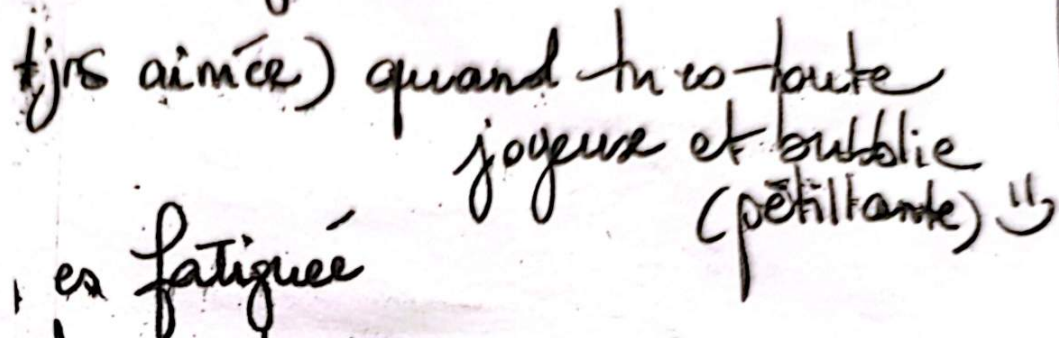 tjrs aimée) quand tu es toute
joyeuse et bubblie
(pétillante) :)
es fatiguée